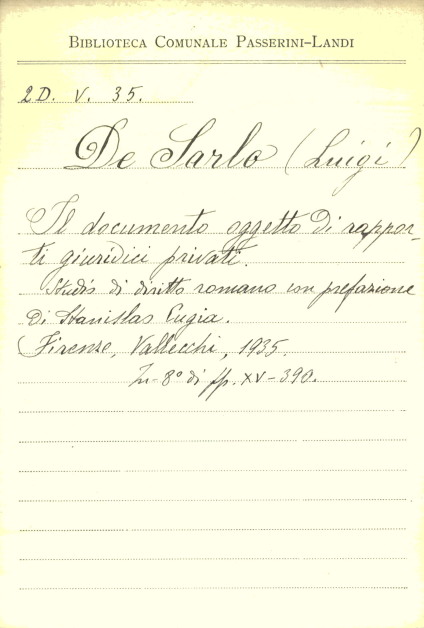 BIBLIOTECA COMUNALE PASSERINI-LANDI
2D. V. 35.
De Sarlo (Luigi)
Il documento oggetto di rappor-
ti giuridici privati.
Studio di diritto romano con prefazione
di Stanislas Cugia.
(Firenze, Vallecchi, 1935.
In-8° di pp. XV-390.